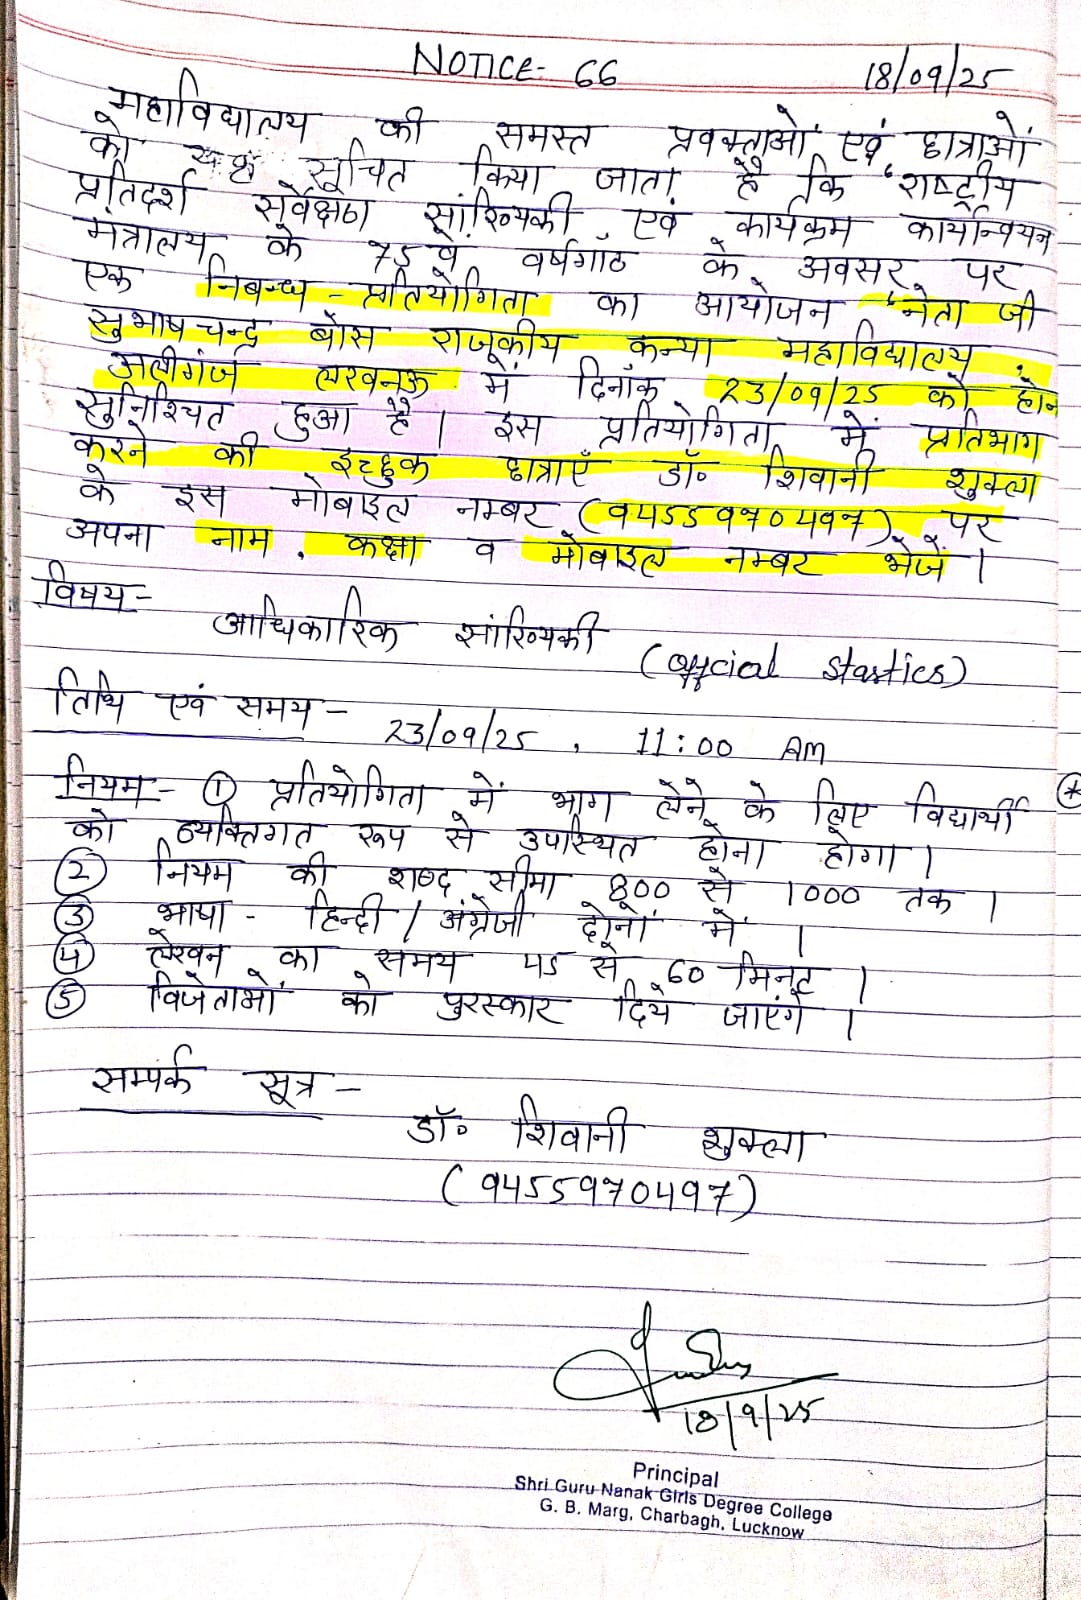 NOTICE- 66 18/09/25
महाविद्यालय की समस्त प्रवक्ताओं एवं छात्राओं
को यह सूचित किया जाता है कि "राष्ट्रीय
प्रतिदर्श सर्वेक्षण सांख्यिकी एवं कार्यक्रम कार्यान्वयन
मंत्रालय के 75वें वर्षगांठ के अवसर पर
एक निबन्ध - प्रतियोगिता का आयोजन "नेता जी
सुभाष चन्द्र बोस राजकीय कन्या महाविद्यालय,
अलीगंज लखनऊ में दिनांक 23/09/25 को होना
सुनिश्चित हुआ है। इस प्रतियोगिता में प्रतिभाग
करने की इच्छुक छात्राएँ डॉ० शिवानी शुक्ला
के इस मोबाइल नम्बर (9455970497) पर
अपना नाम, कक्षा व मोबाइल नम्बर भेजें।
विषय-
आधिकारिक सांख्यिकी (official stastics)
तिथि एवं समय -
23/09/25 , 11:00 AM
नियम- ① प्रतियोगिता में भाग लेने के लिए विद्यार्थी
को व्यक्तिगत रूप से उपस्थित होना होगा।
② नियम की शब्द सीमा 800 से 1000 तक।
③ भाषा - हिन्दी / अंग्रेजी दोनों में।
④ लेखन का समय 45 से 60 मिनट।
⑤ विजेताओं को पुरस्कार दिये जाएंगे।
सम्पर्क सूत्र -
डॉ० शिवानी शुक्ला
(9455970497)
18/9/25
Principal
Shri Guru Nanak Girls Degree College
G. B. Marg, Charbagh, Lucknow